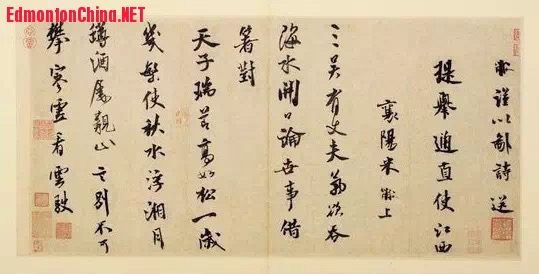 EdmontonChina.NET
黻謹以鄙詩送
提舉通直使江西
襄陽米黻上
三吳有丈夫氣欲吞
海水開口論世事借
箸對
天子瑞節如松一歲
幾繁使秋水浮湘月
罇酒屬觀山言別不可
攀寒雲看雲駛